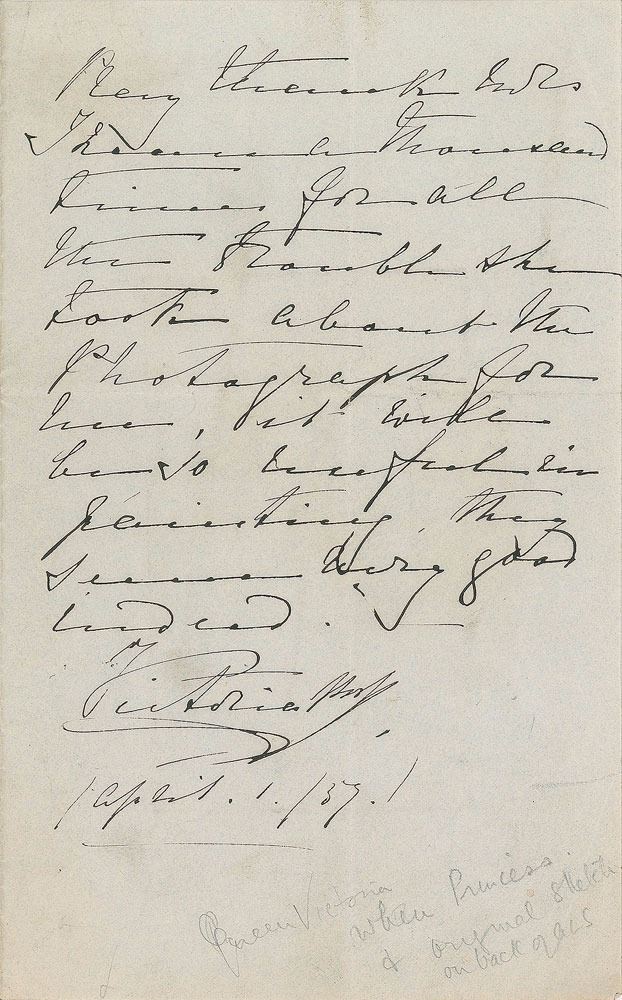 Pray thank Mrs
a thousand
times for all
the trouble she
took about the
Photograph for
me, it will
be so useful in
painting, they
seem very good
indeed.
Victoria
/April. 1. /59./
Queen Victoria
when Princess.
& original sketch
on back of ALS